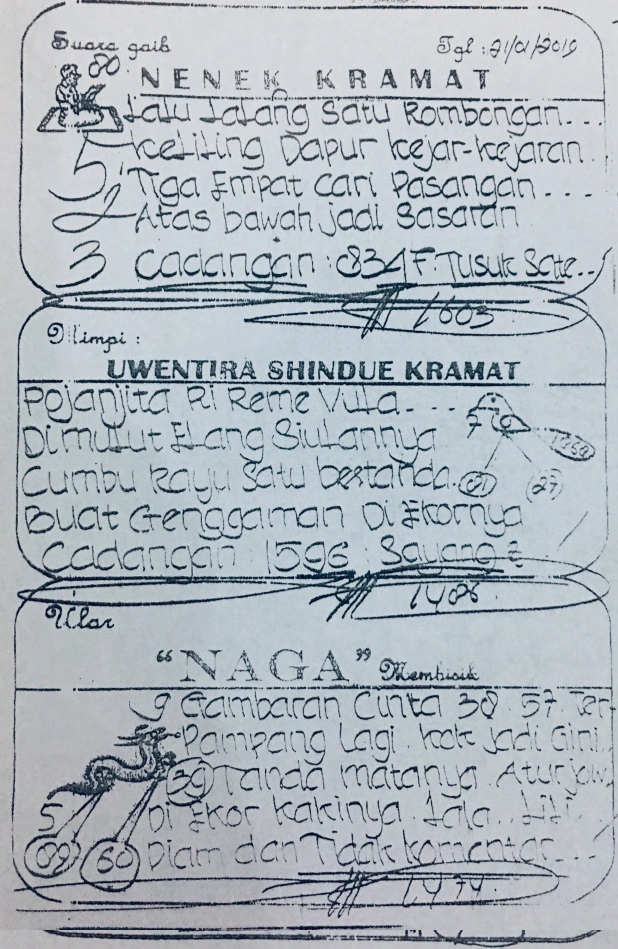 Suara gaib Tgl : 21/01/2019
80
NENEK KRAMAT
Lalu Lalang Satu Rombongan...
5 Keliling Dapur kejar-kejaran.
Tiga Empat Cari Pasangan ...
2 Atas bawah jadi Sasaran
3 Cadangan : 0834 F. Tusuk Sate..
1603
Mimpi :
UWENTIRA SHINDUE KRAMAT
Pojanjita Ri Reme Vula...
Dimulut Elang Siulannya
7
Cumbu Rayu Satu bertanda.
27
Buat Genggaman Di Ekornya
Cadangan : 1596 : Sayang 2
1408
Ular
"NAGA" Membisik
9 Gambaran Cinta 38. 57. Ter-
Pampang Lagi. Kok jadi Gini.
39 Tanda matanya. Atur jow.
5 Di Ekor kakinya. Lala.. Lili.
89 60 Diam dan Tidak komentar...
1474